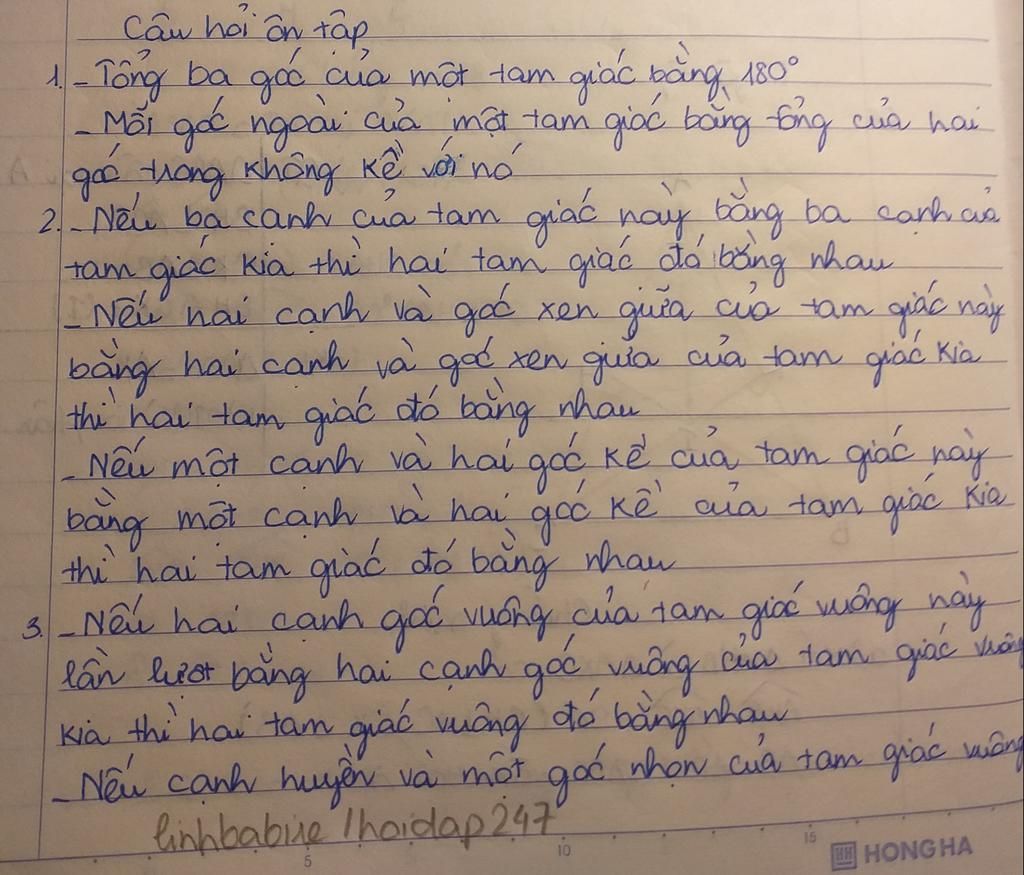 Câu hỏi ôn tập
1. - Tổng ba góc của một tam giác bằng 180°
- Mỗi góc ngoài của một tam giác bằng tổng của hai
góc trong không kề với nó
2. - Nếu ba cạnh của tam giác này bằng ba cạnh của
tam giác kia thì hai tam giác đó bằng nhau
- Nếu hai cạnh và góc xen giữa của tam giác này
bằng hai cạnh và góc xen giữa của tam giác kia
thì hai tam giác đó bằng nhau
- Nếu một cạnh và hai góc kề của tam giác này
bằng một cạnh và hai góc kề của tam giác kia
thì hai tam giác đó bằng nhau
3. - Nếu hai cạnh góc vuông của tam giác vuông này
lần lượt bằng hai cạnh góc vuông của tam giác vuông
kia thì hai tam giác vuông đó bằng nhau
- Nếu cạnh huyền và một góc nhọn của tam giác vuông
linhbabije /hoidap247
5 10 15
HH HONG HA